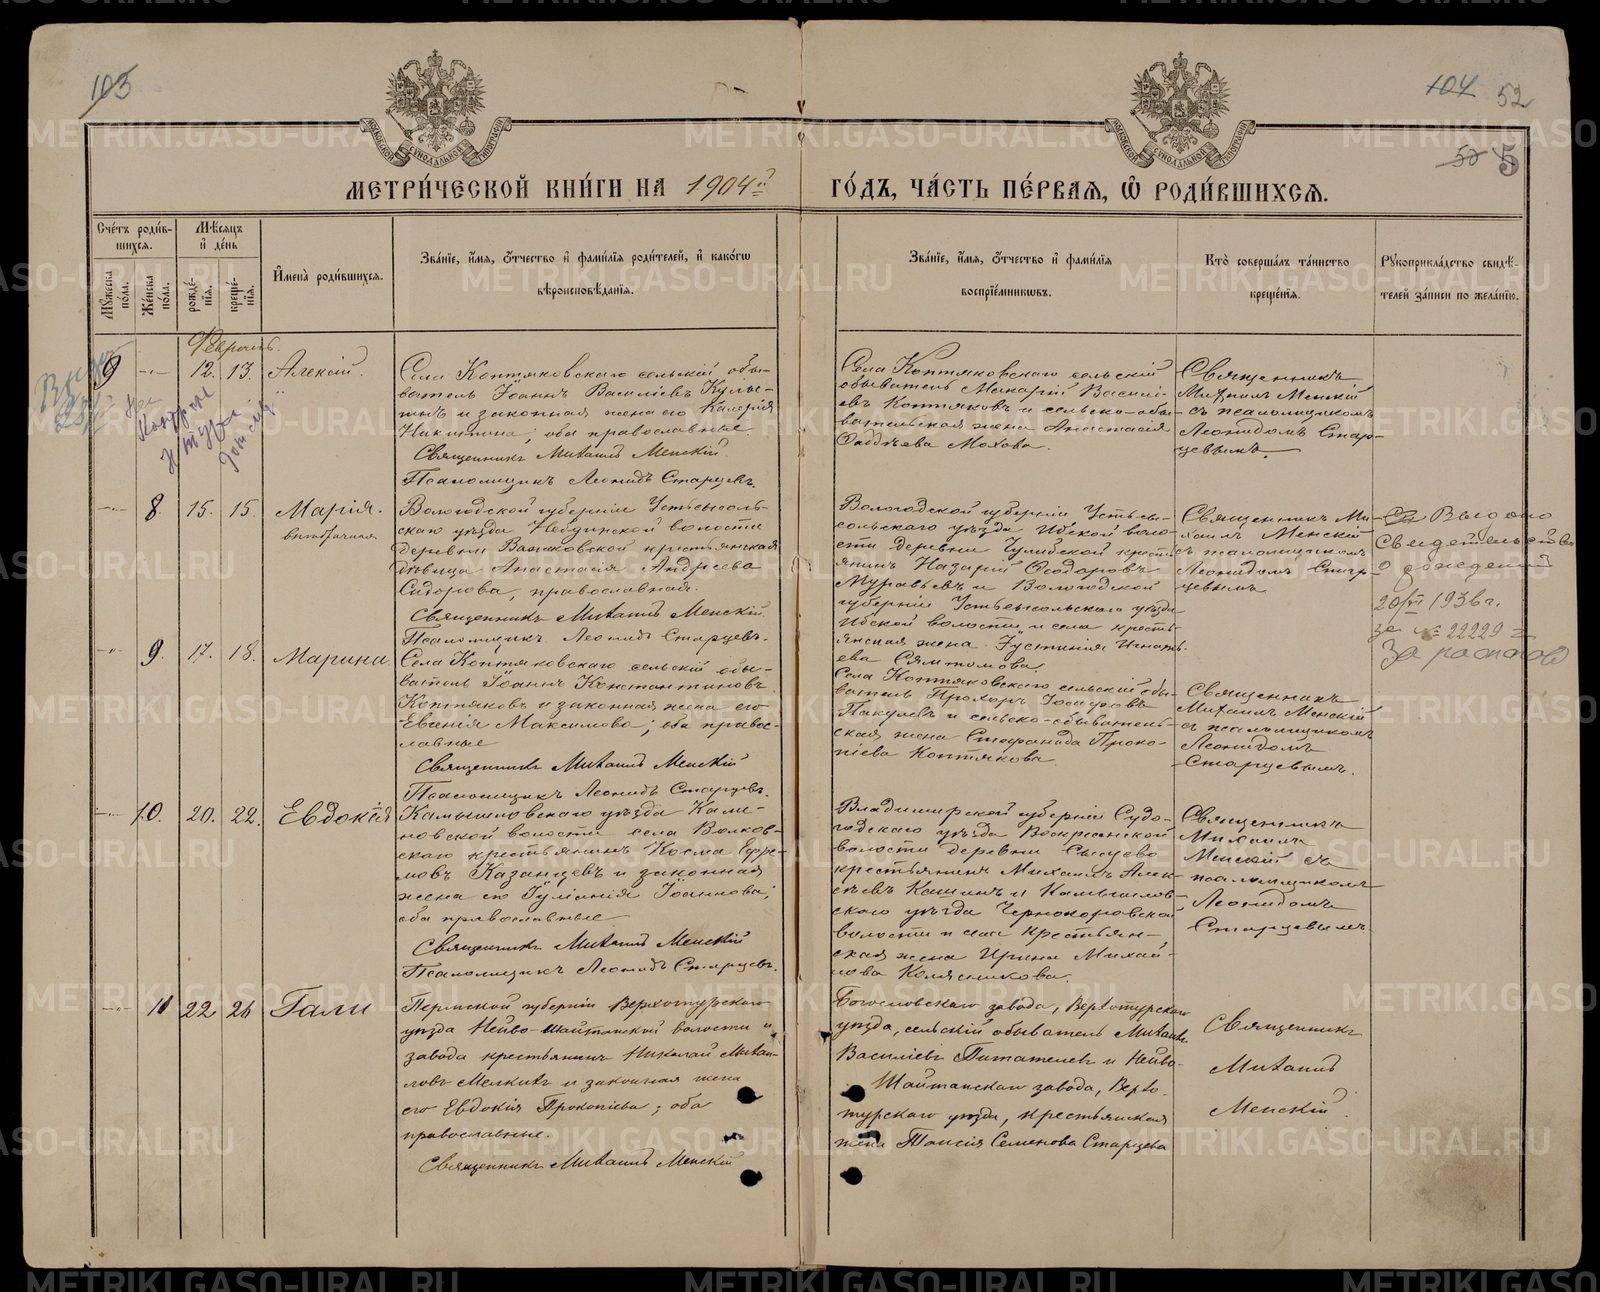 103
104 52
50 5
МОСКОВСКОЙ СѴНОДАЛЬНОЙ ТИПОГРАФІИ
МОСКОВСКОЙ СѴНОДАЛЬНОЙ ТИПОГРАФІИ
МЕТРИ́ЧЕСКОЙ КНИ́ГИ НА 1904й ГО́ДЪ, ЧА́СТЬ ПЕ́РВАЯ, Ѡ РОДИ́ВШИХСЯ.
Сче́тъ роди́вшихся.
Мꙋ́жеска по́ла.
Же́нска по́ла.
Мѣ́сяцъ и҆ де́нь
рожде́нїѧ.
креще́нїѧ.
И҆мена̀ роди́вшихся.
Зва́нїе, и҆́мѧ, ѻ҆́тчество и҆ фами́лїѧ роди́телей, и҆ како́гѡ
вѣроисповѣ́данїѧ.
Зва́нїе, и҆́мѧ, ѻ҆́тчество и҆ фами́лїѧ
воспрїе́мникѡвъ.
Кто̀ соверша́лъ та́инство
креще́нїѧ.
Рꙋкоприкла́дство свидѣ́телей за́писи по жела́нїю.
Февраль.
9 -"- 12. 13. Алексій.
Села Коптяковскаго сельскій обы-
ватель Іоаннъ Василіевъ
и законная жена его Валерія
Никитина; оба православные.
Священникъ Михаилъ Менскій.
Псаломщикъ Леонидъ Старцевъ.
Села Коптяковскаго сельскій
обыватель Макарій Василі-
евъ Коптяковъ и сельско-обы-
вательская жена Анастасія
Фаддѣева Мохова.
Священникъ
Михаилъ Менскій
съ псаломщикомъ
Леонидомъ Стар-
цевымъ.
-"- 8. 15. 15. Марія.
внѣбрачная
Вологодской губерніи Устьсысоль-
скаго уѣзда Небдинской волости
деревни крестьянская
дѣвица Анастасія Андреева
Сидорова, православная.
Священникъ Михаилъ Менскій.
Псаломщикъ Леонидъ Старцевъ.
Вологодской губерніи Устьсы-
сольскаго уѣзда Ибской воло-
сти деревни крестья-
янинъ Назарій Ѳеодоровъ
Муравьевъ и Вологодской
губерніи Устьсысольскаго уѣзда
Ибской волости и села кресть-
янская жена Іустинія Игнать-
ева
Священникъ Ми-
хаилъ Менскій
съ псаломщикомъ
Леонидомъ Стар-
цевымъ
Выдано
Свидетельство
о рождении
20/VI 1936 г.
за № 22229
-"- 9. 17. 18. Марина
Села Коптяковскаго сельскій обы-
ватель Іоаннъ Константиновъ
Коптяковъ и законная жена его
Евгенія Максимова; оба право-
славные
Священникъ Михаилъ Менскій
Псаломщикъ Леонидъ Старцевъ.
Села Коптяковскаго сельскій обы-
ватель Прохоръ
Пакулевъ и сельско-обыватель-
ская жена Стефанида Проко-
піева Коптякова.
Священникъ
Михаилъ Менскій
съ псаломщикомъ
Леонидомъ
Старцевымъ.
-"- 10. 20. 22. Евдокія
Камышловскаго уѣзда Каме-
новской волости села Волков-
скаго крестьянинъ Косма Ефре-
мовъ Казанцевъ и законная
жена его Іуліанія Іоаннова;
оба православные
Священникъ Михаилъ Менскій
Псаломщикъ Леонидъ Старцевъ.
Владимирской губерніи Судо-
годскаго уѣзда Воскресенской
волости деревни Сысоево
крестьянинъ Михаилъ Алек-
сѣевъ Кашинъ и Камышлов-
скаго уѣзда Чернокоровской
волости и села крестьян-
ская жена Ирина Михай-
лова Колясникова.
Священникъ
Михаилъ
Менскій съ
псаломщикомъ
Леонидомъ
Старцевымъ
-"- 11 22 26 Гали
Пермской губерніи Верхотурскаго
уѣзда Нейво-Шайтанской волости и
завода крестьянинъ Николай Михаи-
ловъ Мелкихъ и законная жена
его Евдокія Прокопіева; оба
православные.
Священникъ Михаилъ Менскій
Богословскаго завода, Верхотурскаго
уѣзда, сельскій обыватель Михаилъ
Василіевъ Питателевъ и Нейво-
Шайтанскаго завода, Верхо-
турскаго уѣзда, крестьянская
жена Таисія Семенова Старцева
Священникъ
Михаилъ
Менскій.
METRIKI.GASO-URAL.RU